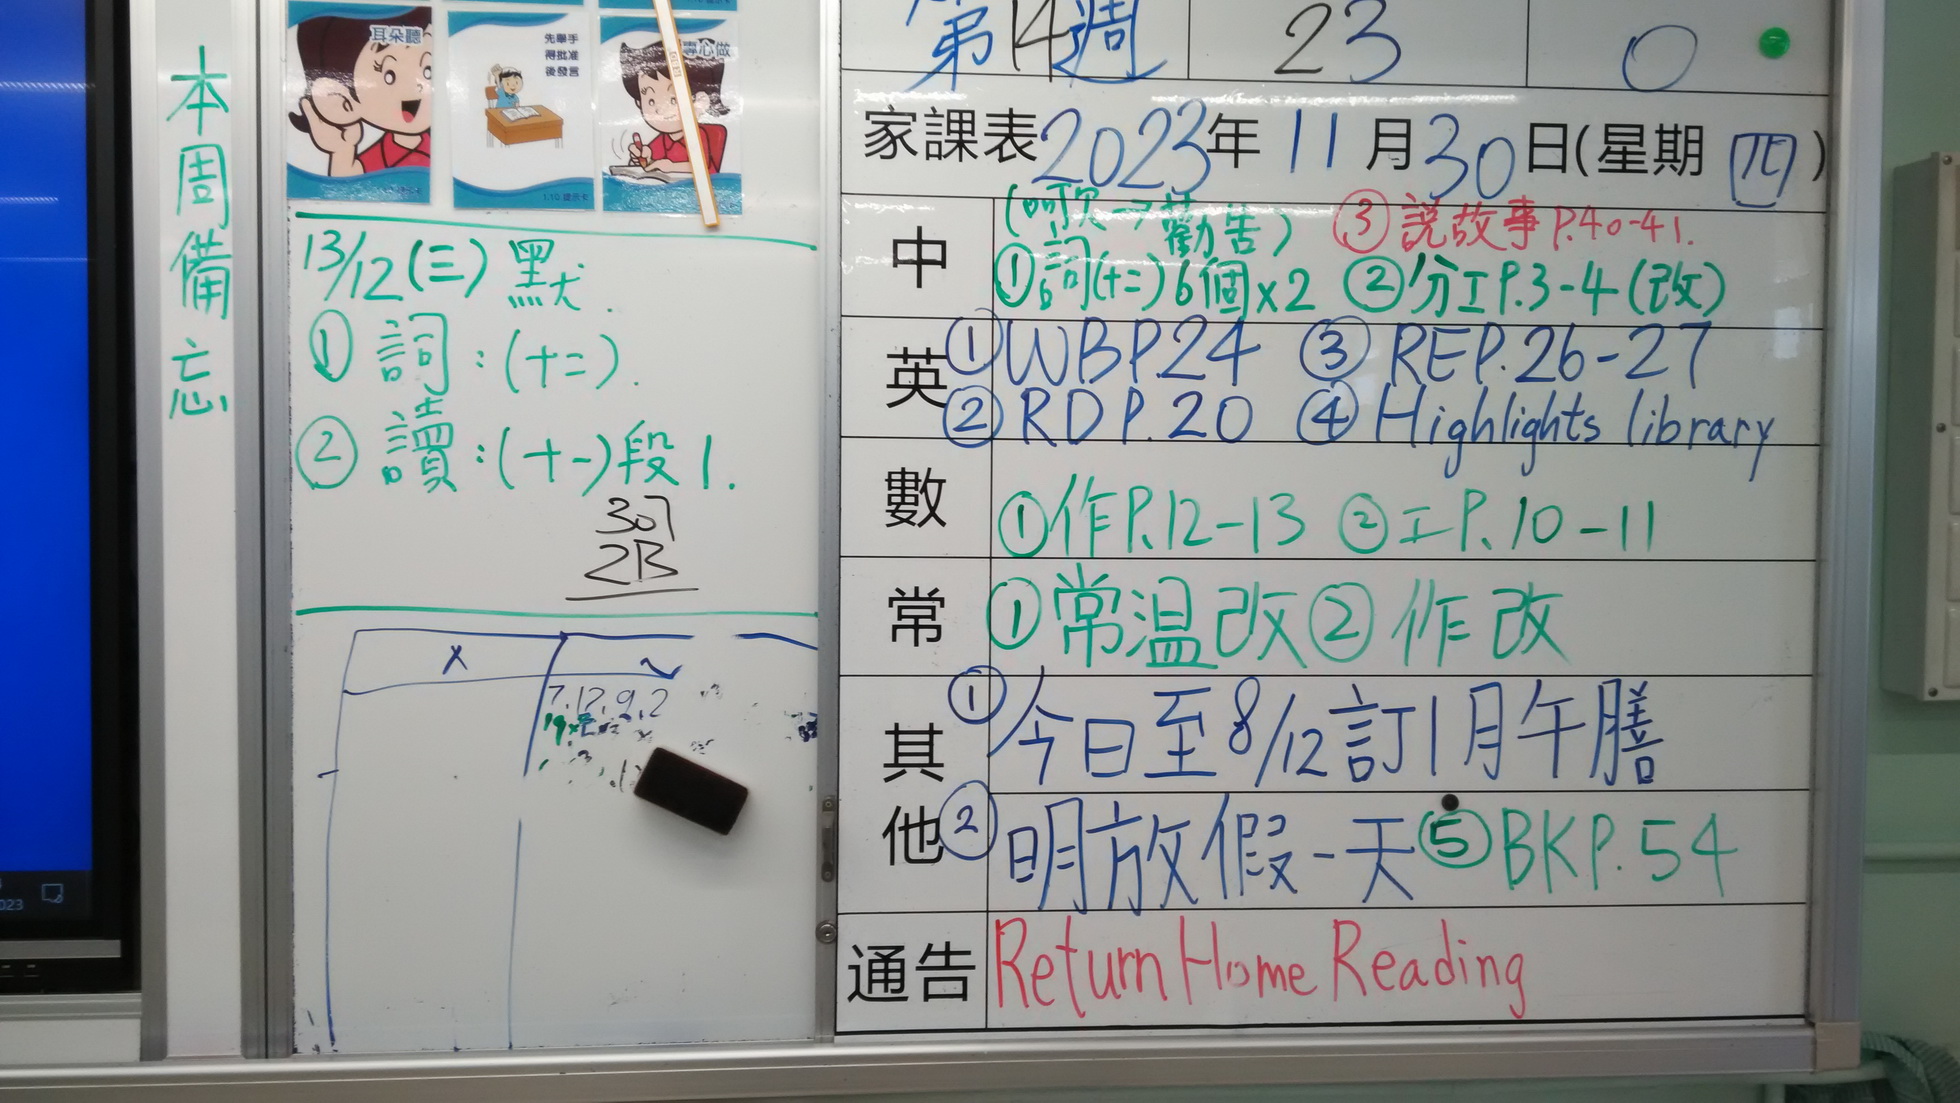 本周備忘
耳朵聽
先舉手
得批准
後發言
專心做
1.10 提示卡
13/12(三) 默.
① 詞:(十二).
② 讀:(十一)段1.
307
2B
x
7.17.9.2
023
第14週 23 0
家課表2023年11月30日(星期四)
中
(呵欠→勸告) ③說故事P.40-41.
①詞(十二)6個x2 ②分工P.3-4(改)
英
①WBP.24 ③REP.26-27
②RDP.20 ④Highlights library
數
①作P.12-13 ②工P.10-11
常
①常温改②作改
其他
①今日至8/12訂1月午膳
②明放假一天⑤BKP.54
通告
Return Home Reading